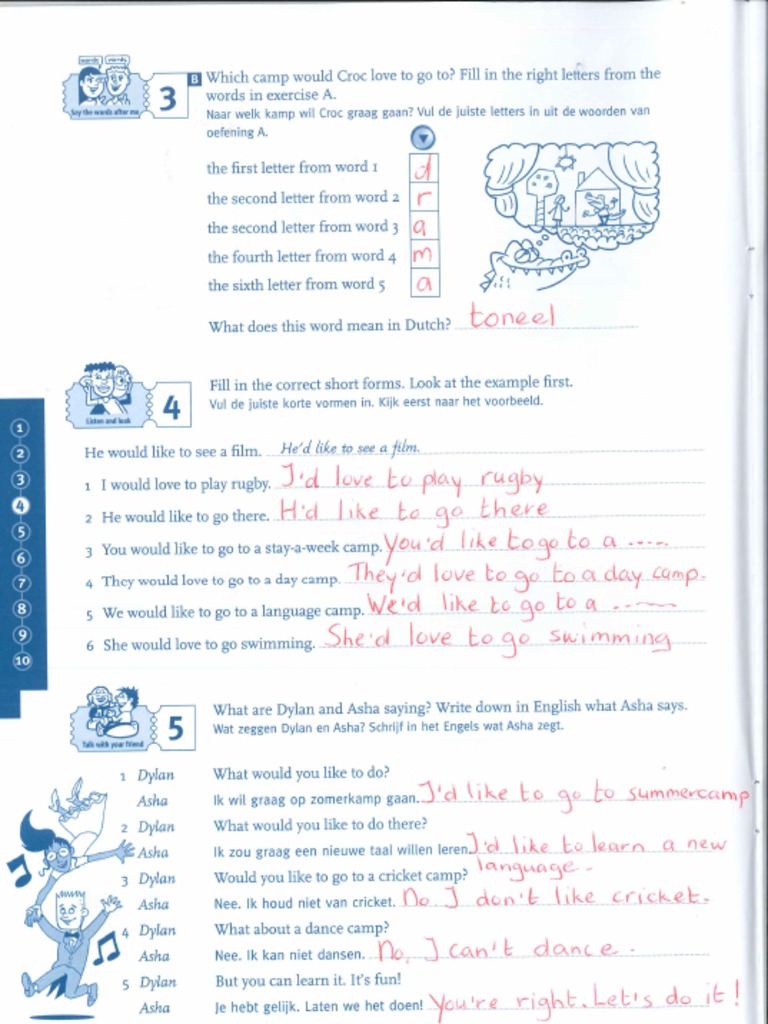 words words
Say the words after me
3
B Which camp would Croc love to go to? Fill in the right letters from the
words in exercise A.
Naar welk kamp wil Croc graag gaan? Vul de juiste letters in uit de woorden van
oefening A.
the first letter from word 1 d
the second letter from word 2 r
the second letter from word 3 a
the fourth letter from word 4 m
the sixth letter from word 5 a
What does this word mean in Dutch? toneel
Listen and look
4
Fill in the correct short forms. Look at the example first.
Vul de juiste korte vormen in. Kijk eerst naar het voorbeeld.
He would like to see a film. He'd like to see a film.
1 I would love to play rugby. I'd love to play rugby
2 He would like to go there. H'd like to go there
3 You would like to go to a stay-a-week camp. You'd like to go to a .....
4 They would love to go to a day camp. They'd love to go to a day camp.
5 We would like to go to a language camp. We'd like to go to a .....
6 She would love to go swimming. She'd love to go swimming
1
2
3
4
5
6
7
8
9
10
Talk with your friend
5
What are Dylan and Asha saying? Write down in English what Asha says.
Wat zeggen Dylan en Asha? Schrijf in het Engels wat Asha zegt.
1 Dylan What would you like to do?
Asha Ik wil graag op zomerkamp gaan. I'd like to go to summercamp
2 Dylan What would you like to do there?
Asha Ik zou graag een nieuwe taal willen leren. I'd like to learn a new
language.
3 Dylan Would you like to go to a cricket camp?
Asha Nee. Ik houd niet van cricket. No I don't like cricket.
4 Dylan What about a dance camp?
Asha Nee. Ik kan niet dansen. No, I can't dance.
5 Dylan But you can learn it. It's fun!
Asha Je hebt gelijk. Laten we het doen! You're right. Let's do it!